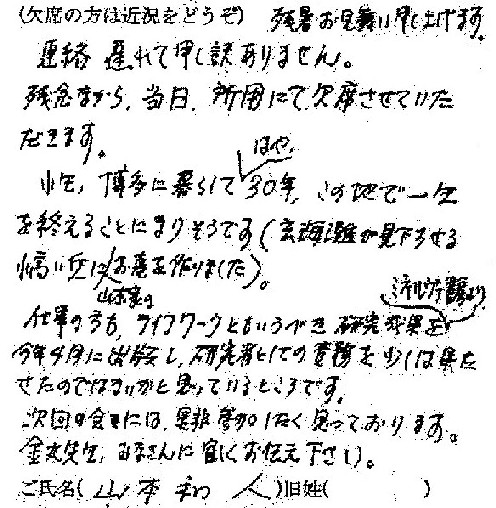 (欠席の方は近況をどうぞ) 残暑お見舞い申し上げます。
連絡遅れて申し訳ありません。
残念ながら、当日、所用にて欠席させていた
だきます。
はや
小生、博多に暮らして30年、この地で一生
を終えることになりそうです(玄海灘が見下ろせる
小高い丘に お墓を作りました)。
山本家の
仕事のうち、ライフワークともいうべき 研究成果を
今年4月に出版し、研究者としての責務を少しは果た
せたのではないかと思っているところです。
次回の会には、是非参加したく思っております。
金丸先生、みなさんに宜しくお伝え下さい。
ご氏名(山本和人)旧姓( )